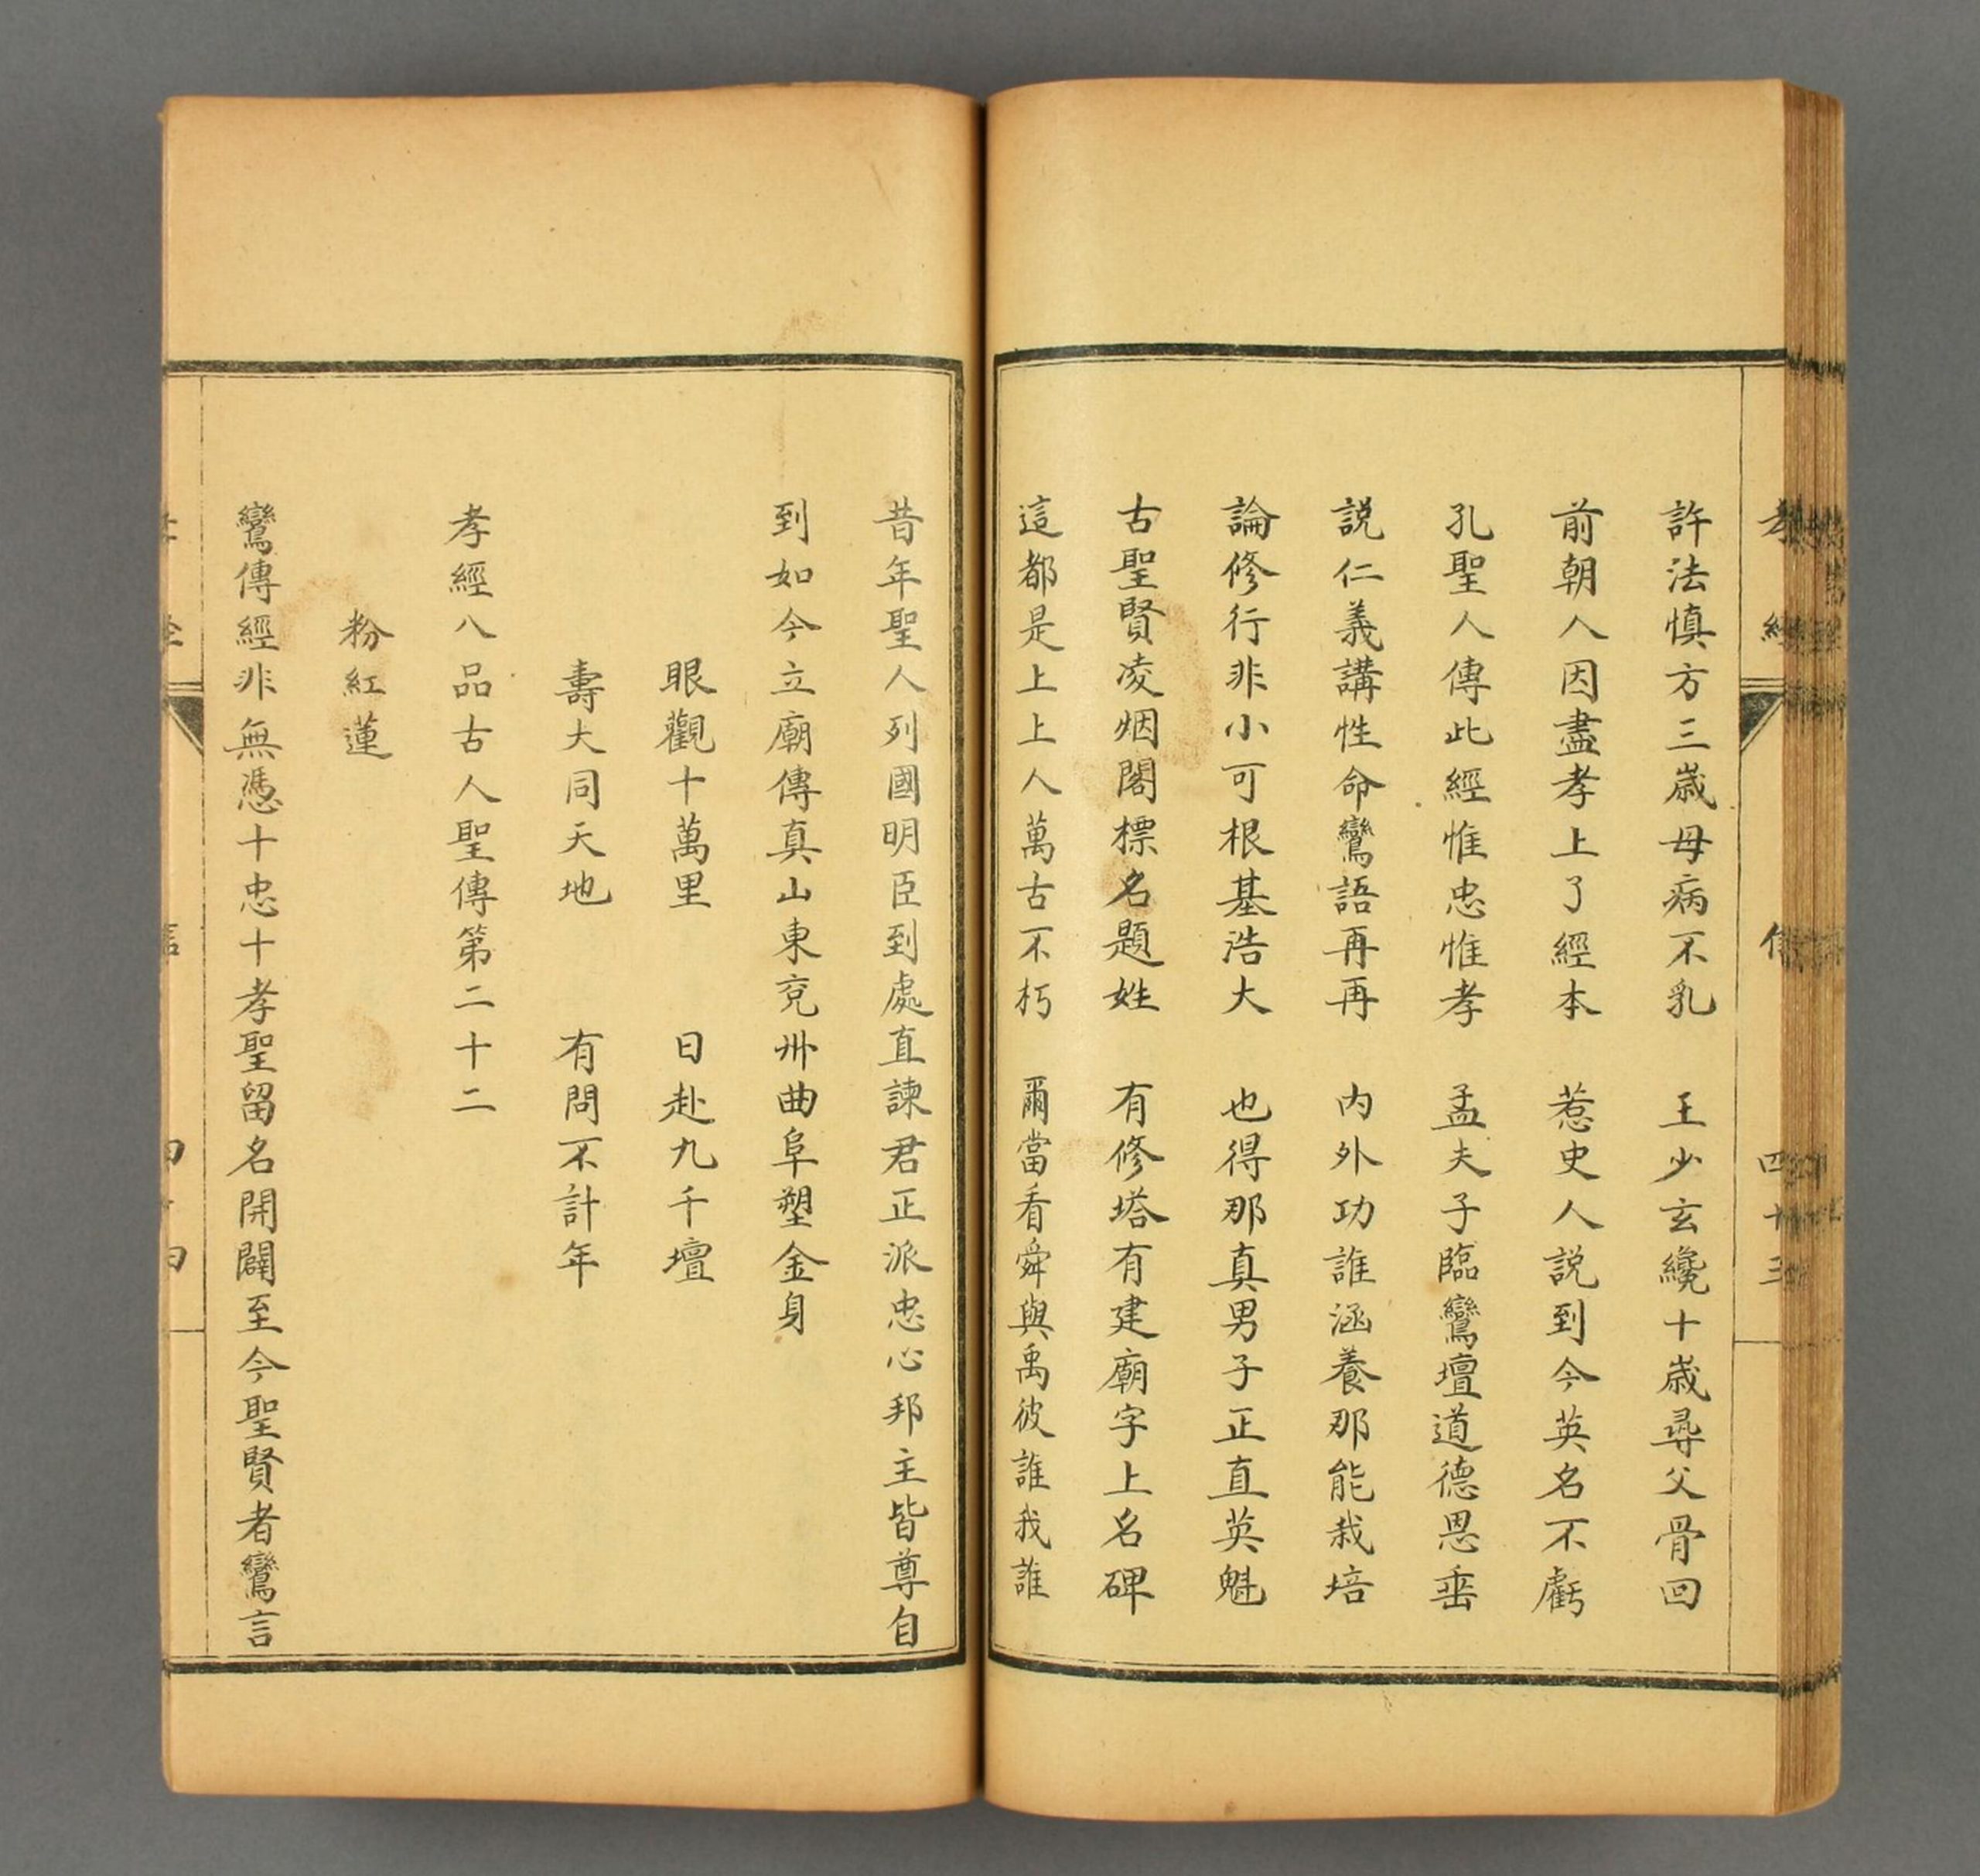 孝經 信 四十三
許法慎方三歲母病不乳 王少玄纔十歲尋父骨回
前朝人因盡孝上了經本 惹史人説到今英名不虧
孔聖人傳此經惟忠惟孝 孟夫子臨鸞壇道德恩垂
説仁義講性命鸞語再再 内外功誰涵養那能栽培
論修行非小可根基浩大 也得那真男子正直英魁
古聖賢凌烟閣標名題姓 有修塔有建廟字上名碑
這都是上上人萬古不朽 爾當看舜與禹彼誰我誰
昔年聖人列國明臣到處直諫君正派忠心邦主皆尊自
到如今立廟傳真山東兗州曲阜塑金身
眼觀十萬里 日赴九千壇
壽大同天地 有問不計年
孝經八品古人聖傳第二十二
粉紅蓮
鸞傳經非無憑十忠十孝聖留名開闢至今聖賢者鸞言